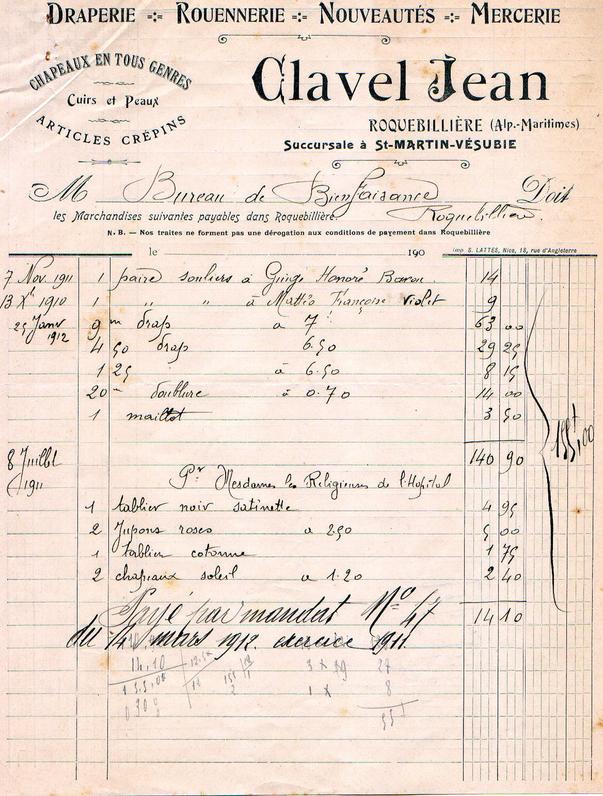 DRAPERIE -:- ROUENNERIE -:- NOUVEAUTÉS -:- MERCERIE
CHAPEAUX EN TOUS GENRES
Cuirs et Peaux
ARTICLES CRÉPINS
Clavel Jean
ROQUEBILLIÈRE (Alp.-Maritimes)
Succursale à St-MARTIN-VÉSUBIE
M Bureau de Bienfaisance Doit
les Marchandises suivantes payables dans Roquebillière. Roquebillière.
N. B. — Nos traites ne forment pas une dérogation aux conditions de payement dans Roquebillière
le 190
Imp. S. LATTES, Nice, 18, rue d'Angleterre
7 Nov. 1911 1 paire souliers à Ginge Honoré 14
13 Xbre 1910 1 " " à Mattéo Françoise Violet 9
25 Janv 1912 9 m drap a 7 63 00
4 50 drap 6.50 29 25
1 25 à 6.50 8 15
20 m doublure à 0.70 14 00
1 maillot 3 50
140 90
155,00
8 Juillet 1911
Pr Mesdames les Religieuses de l'Hopital
1 tablier noir satinette 4 95
2 Jupons roses a 250 5 00
1 tablier cotonne 1 75
2 chapeaux soleil a 1.20 2 40
14 10
Payé par mandat No 47
du 14 mars 1912. exercice 1911.
14,10
155,00